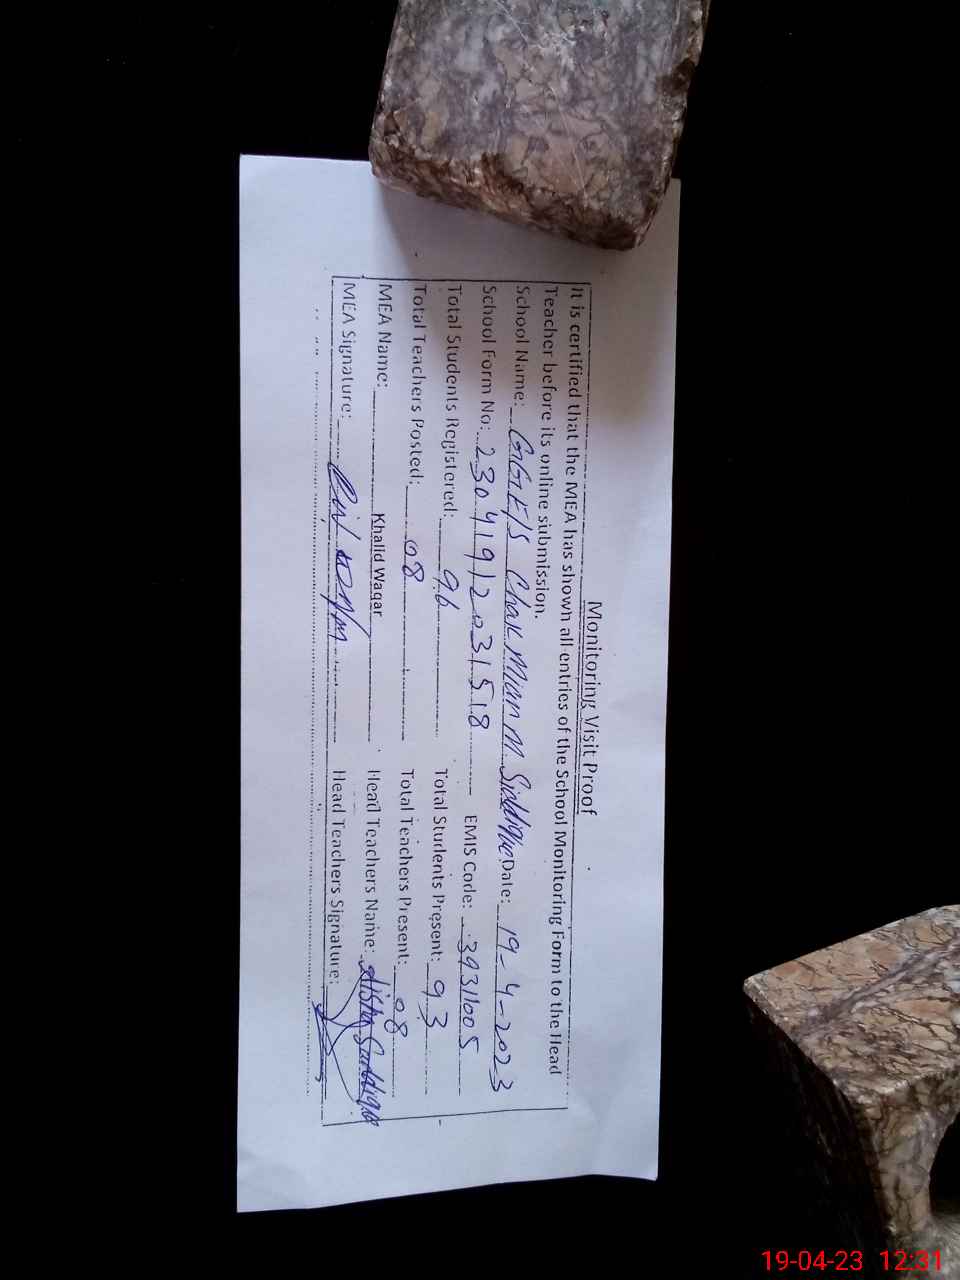 Monitoring Visit Proof
It is certified that the MEA has shown all entries of the School Monitoring Form to the Head
Teacher before its online submission.
School Name: GGE/S Chak Mian M. Siddique Date: 19-4-2023
School Form No: 23041912031518 EMIS Code: 39311005
Total Students Registered: 96 Total Students Present: 93
Total Teachers Posted: 08 Total Teachers Present: 08
MEA Name: Khalid Waqar Head Teachers Name: Aisha Saddiqa
MEA Signature: Head Teachers Signature:
19-04-23 12:31